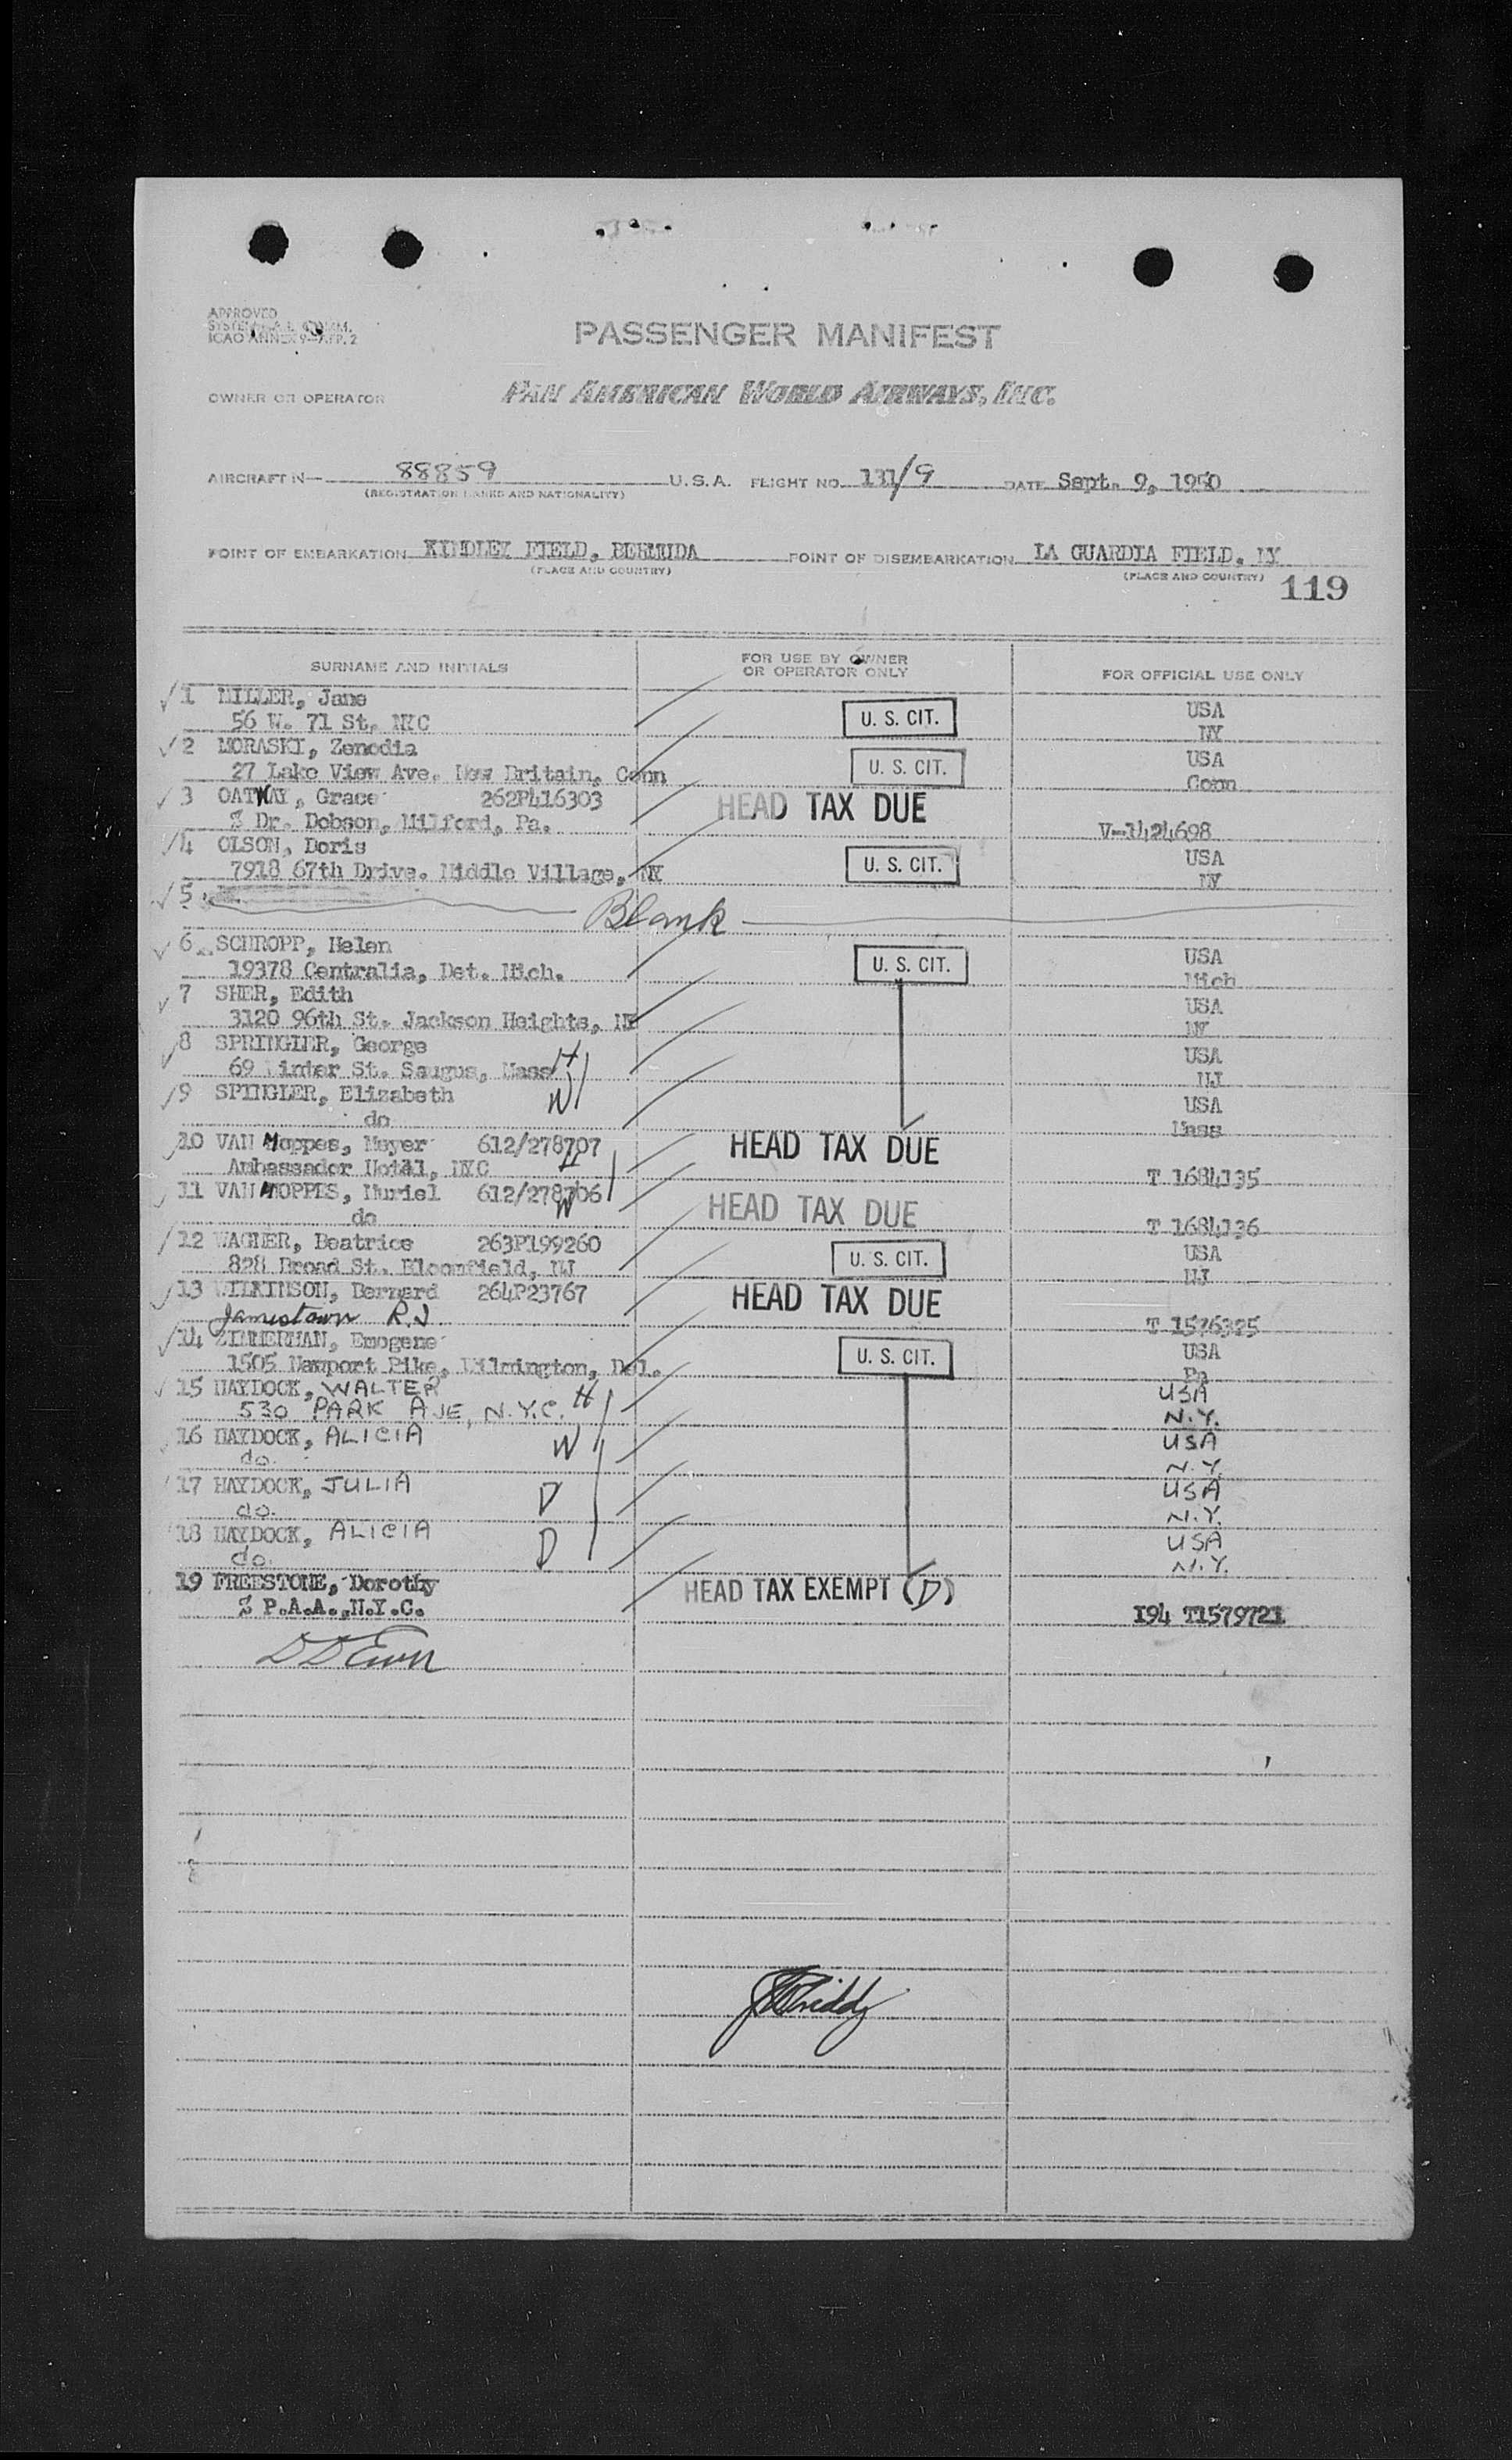 APPROVED
ICAO ANNEX 9-APP. 2
PASSENGER MANIFEST
OWNER OR OPERATOR PAN AMERICAN WORLD AIRWAYS, INC.
AIRCRAFT N— 88859 U.S.A. FLIGHT NO. 131/9 DATE Sept. 9, 1950
(REGISTRATION MARKS AND NATIONALITY)
POINT OF EMBARKATION KINDLEY FIELD, BERMUDA POINT OF DISEMBARKATION LA GUARDIA FIELD, NY
(PLACE AND COUNTRY) (PLACE AND COUNTRY)
119
SURNAME AND INITIALS FOR USE BY OWNER OR OPERATOR ONLY FOR OFFICIAL USE ONLY
1 MILLER, Jane U. S. CIT. USA
56 W. 71 St, NYC NY
2 MORASKI, Zenodia U. S. CIT. USA
27 Lake View Ave. New Britain, Conn Conn
3 OATWAY, Grace 262P416303 HEAD TAX DUE
% Dr. Dobson, Milford, Pa. V-1424698
4 OLSON, Doris U. S. CIT. USA
7918 67th Drive. Middle Village, NY NY
5 Blank
6 SCHROPP, Helen U. S. CIT. USA
19378 Centralia, Det. Mich. Mich
7 SHER, Edith USA
3120 96th St. Jackson Heights, NY NY
8 SPRINGLER, George H USA
69 Winter St. Saugus, Mass NJ
9 SPINGLER, Elizabeth W USA
do Mass
10 VAN Moppes, Meyer 612/278707 HEAD TAX DUE
Ambassador Hotel, NYC H T 1684135
11 VAN MOPPES, Muriel 612/278706 HEAD TAX DUE
do W T 1684136
12 WAGNER, Beatrice 263P199260 U. S. CIT. USA
828 Broad St. Bloomfield, NJ NJ
13 WILKINSON, Bernard 264P23767 HEAD TAX DUE
Jamestown R.I T 1576325
14 ZIMMERMAN, Emogene U. S. CIT. USA
1505 Newport Pike, Wilmington, Del. Pa
15 HAYDOCK, WALTER H USA
530 PARK AVE, N.Y.C. N.Y.
16 HAYDOCK, ALICIA W USA
do. N.Y.
17 HAYDOCK, JULIA D USA
do. N.Y.
18 HAYDOCK, ALICIA D USA
do. N.Y.
19 FREESTONE, Dorothy HEAD TAX EXEMPT (D)
% P.A.A.,N.Y.C. I94 T1579721